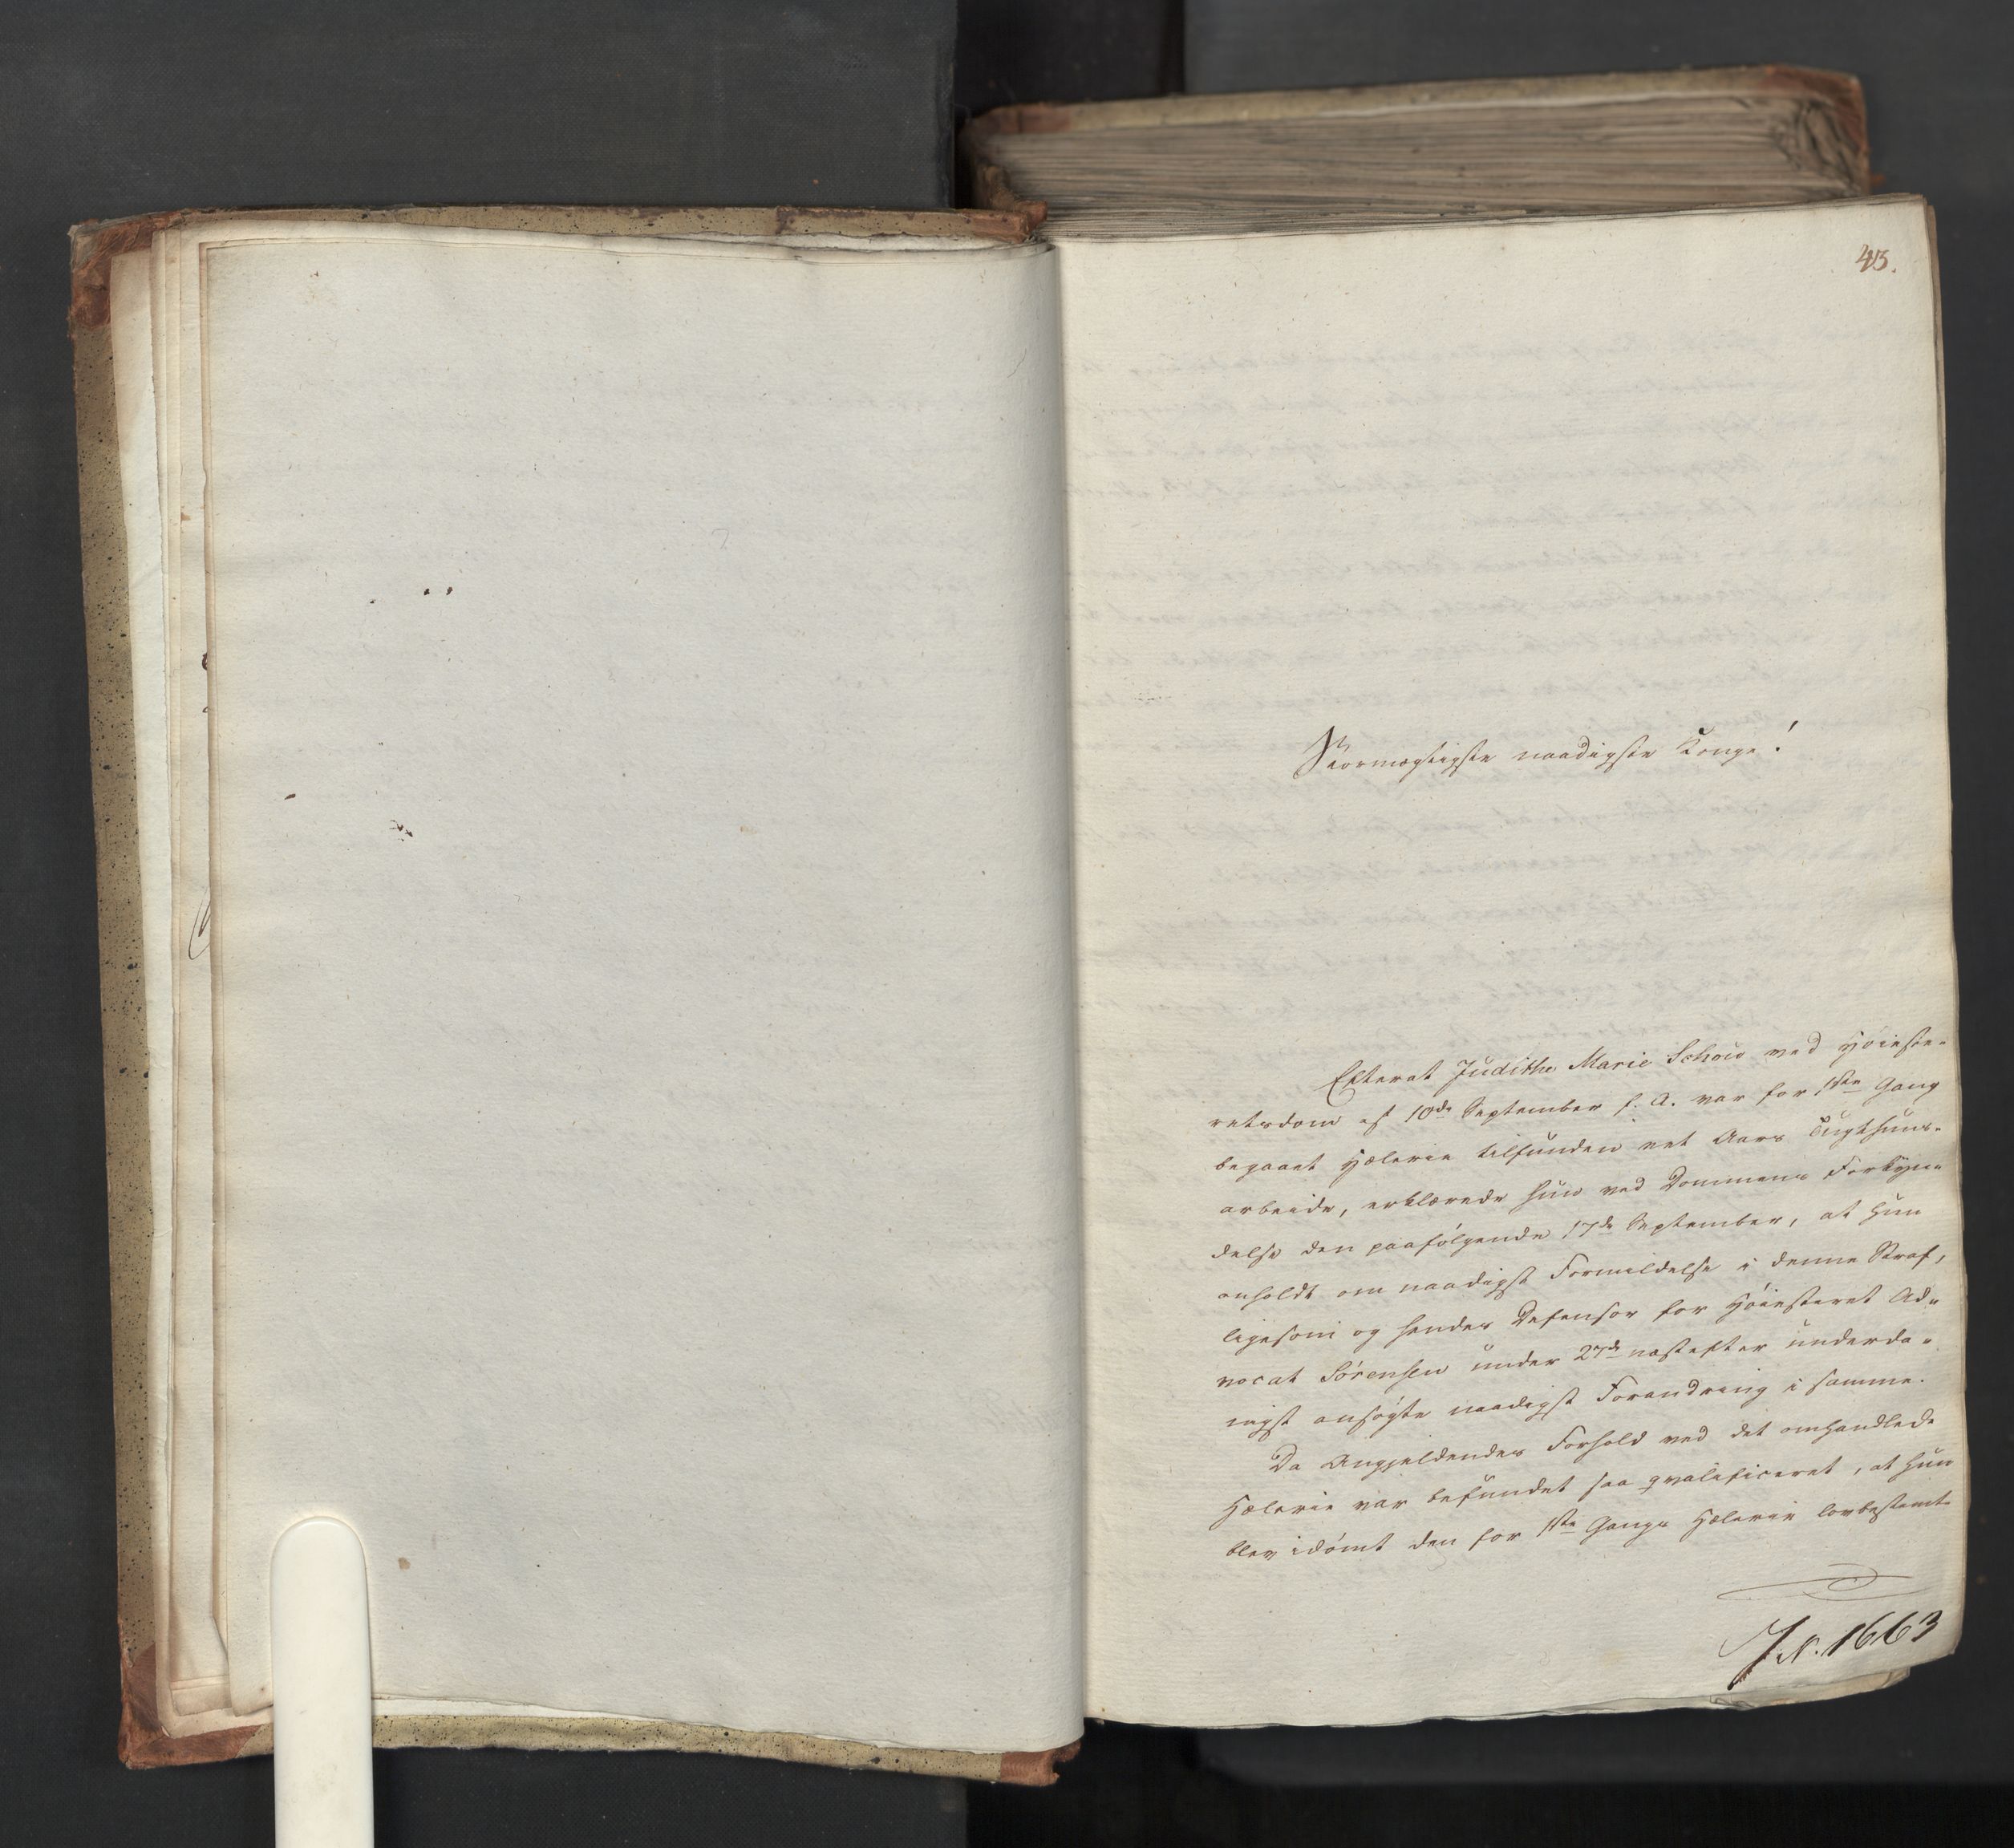 43.
Stormægtigste naadigste Konge!
Efterat Judithe Marie Schou ved Høieste-
retsdom af 10de September f. A. var for 1ste Gang
begaaet Hæleri tilfunden eet Aars Tugthuus-
arbeide, erklærede hun ved Dommens Forkyn-
delse den paafølgende 17de September, at hun
anholdt om naadigst Formildelse i denne Straf,
ligesom og hendes Defensor for Høiesteret Ad-
vocat Sørensen under 27de næstefter underda-
nigst ansøgte naadigst Forandring i samme.
Da Angjeldendes Forhold ved det omhandlede
Hælerie var befundet saa qvalificeret, at hun
blev idømt den for 1ste Gangs Hælerie lovbestemte
J.N. 1663